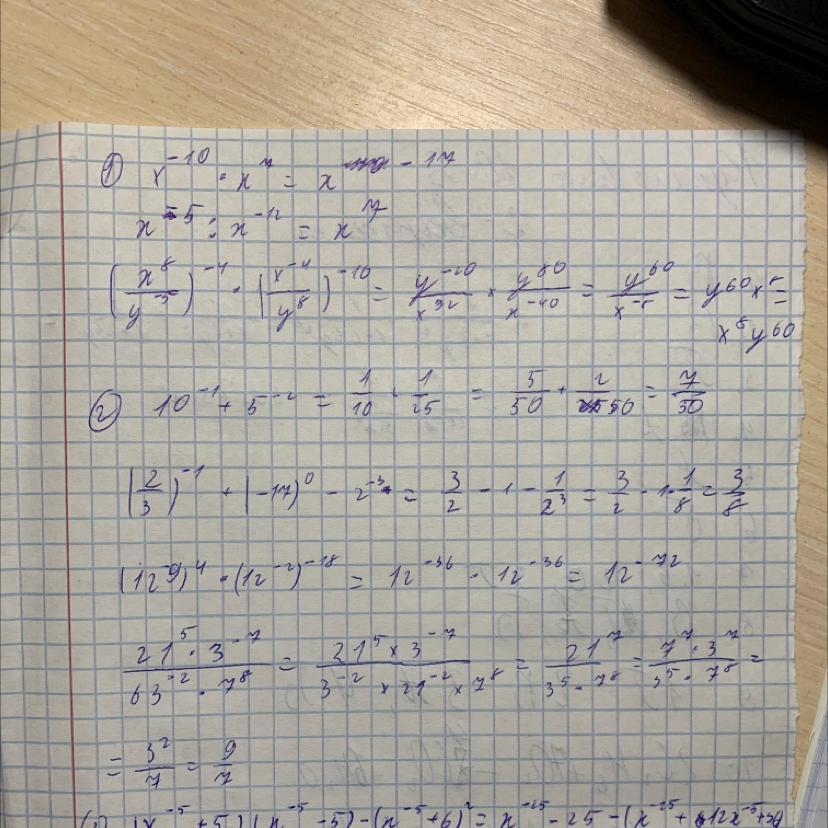 1) x^-10 · x^7 = x^-17
x^-5 : x^-12 = x^7
(x^8/y^-5)^-4 · (x^-4/y^8)^-10 = y^-20/x^32 × y^80/x^-40 = y^60/x^-8 = y^60 x^8 =
x^8 y^60
2) 10^-1 + 5^-2 = 1/10 + 1/25 = 5/50 + 2/50 = 7/50
(2/3)^-1 + (-17)^0 - 2^-3 = 3/2 - 1 - 1/2^3 = 3/2 - 1 - 1/8 = 3/8
(12^-9)^4 · (12^-2)^-18 = 12^-36 · 12^-36 = 12^-72
21^5 · 3^-7 / 63^-2 · 7^8 = 21^5 × 3^-7 / 3^-2 × 21^-2 × 7^8 = 21^7 / 3^5 · 7^8 = 7^7 · 3^7 / 3^5 · 7^8 =
= 3^2/7 = 9/7
(x^-5 + 5)(x^-5 - 5) - (x^-5 + 6)^2 = x^-25 - 25 - (x^-25 + 12x^-5 + 36